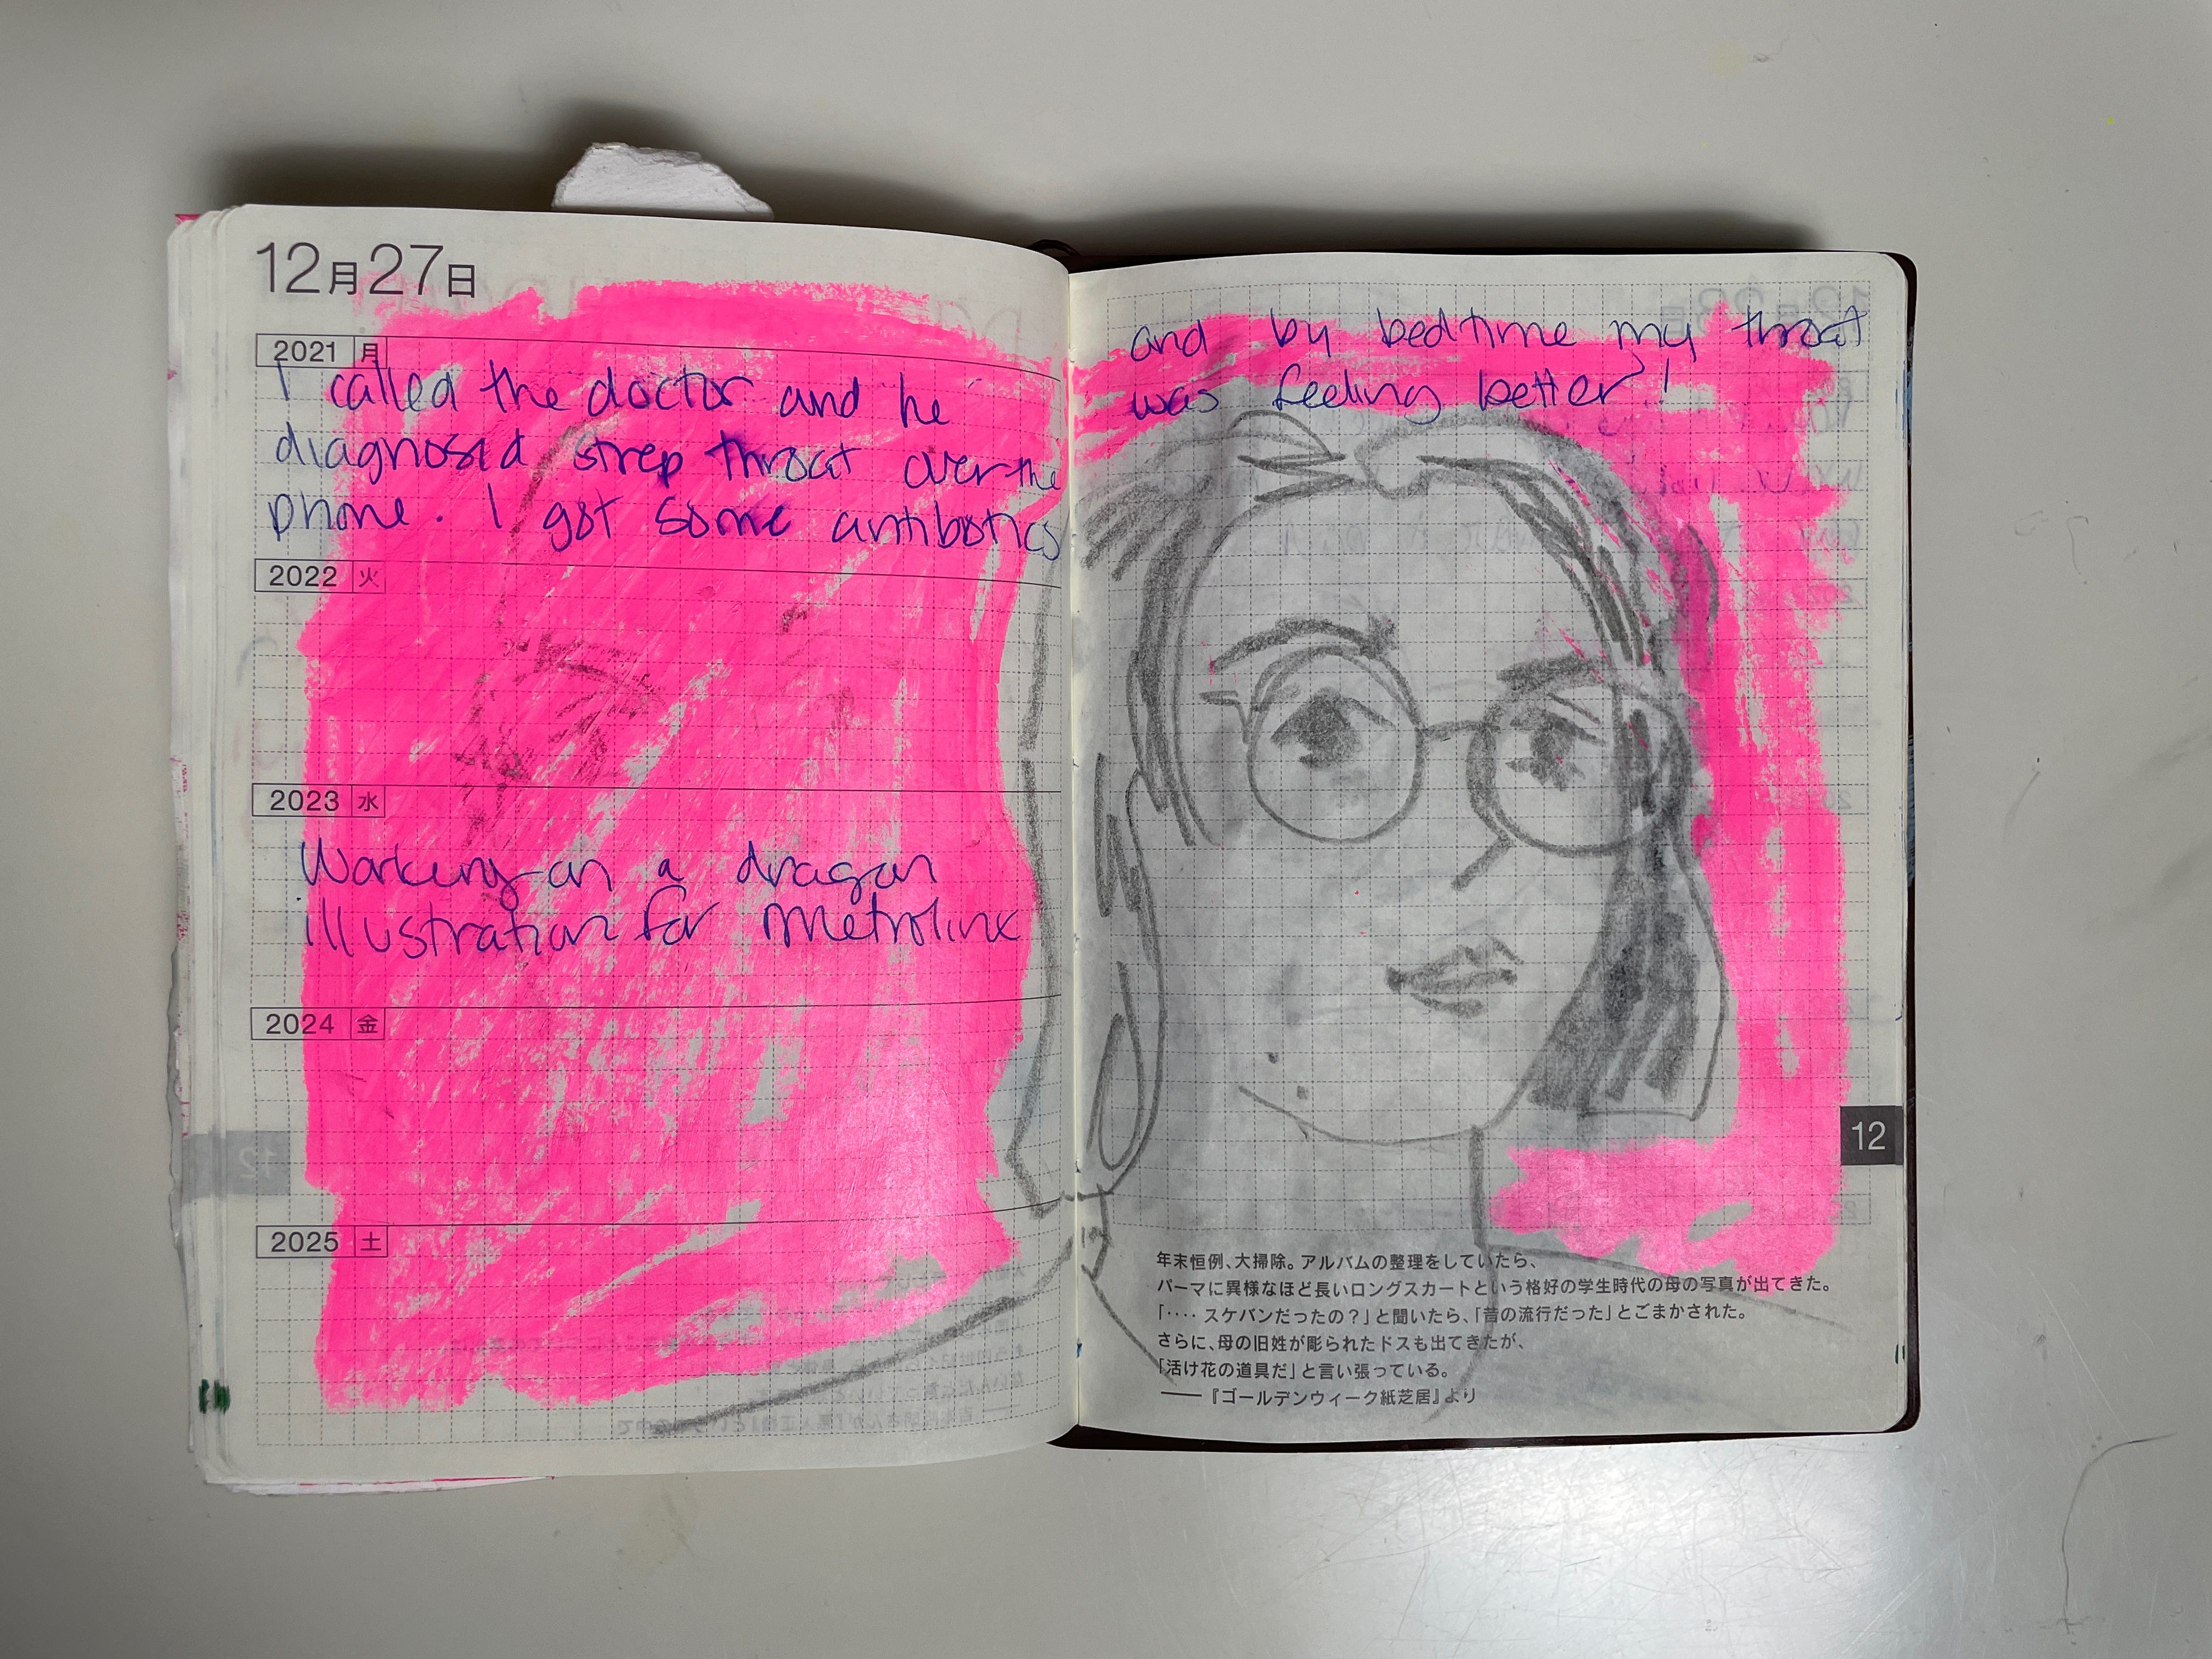 12月27日
2021 月
I called the doctor and he
diagnosed strep throat over the
phone. I got some antibotics
2022 火
2023 水
Working on a dragon
illustration for Metrolink
2024 金
2025 土
and by bedtime my throat
was feeling better!
12
年末恒例、大掃除。アルバムの整理をしていたら、
パーマに異様なほど長いロングスカートという格好の学生時代の母の写真が出てきた。
「‥‥スケバンだったの？」と聞いたら、「昔の流行だった」とごまかされた。
さらに、母の旧姓が彫られたドスも出てきたが、
「活け花の道具だ」と言い張っている。
——『ゴールデンウィーク紙芝居』より